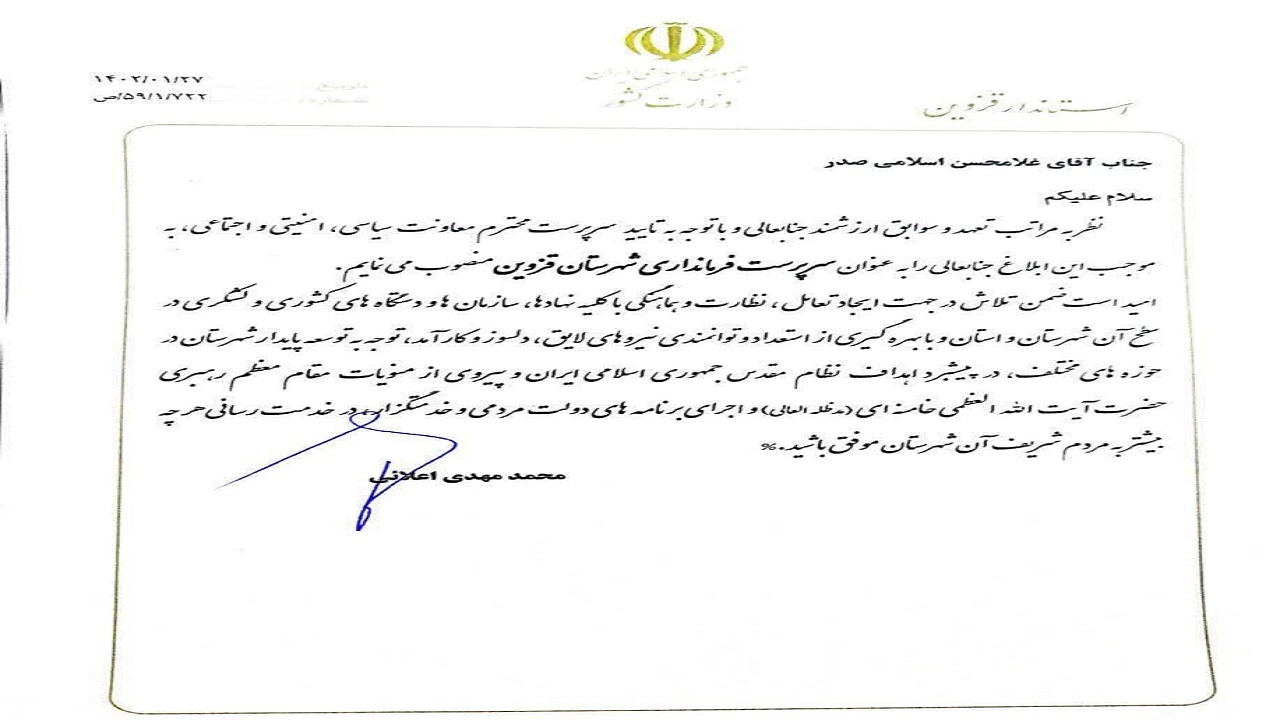 جمهوری اسلامی ایران
وزارت کشور
استاندار قزوین
تاریخ ۱۴۰۲/۰۱/۲۷
شماره ۵۹/۱/۷۲۲/ص
جناب آقای غلامحسن اسلامی صدر
سلام علیکم
نظر به مراتب تعهد و سوابق ارزشمند جنابعالی و با توجه به تایید سرپرست محترم معاونت سیاسی، امنیتی و اجتماعی، به
موجب این ابلاغ جنابعالی را به عنوان سرپرست فرمانداری شهرستان قزوین منصوب می نمایم.
امید است ضمن تلاش در جهت ایجاد تعامل، نظارت و هماهنگی با کلیه نهادها، سازمان ها و دستگاه های کشوری و لشکری در
سطح آن شهرستان و استان و با بهره گیری از استعداد و توانمندی نیروهای لایق، دلسوز و کارآمد، توجه به توسعه پایدار شهرستان در
حوزه های مختلف، در پیشبرد اهداف نظام مقدس جمهوری اسلامی ایران و پیروی از منویات مقام معظم رهبری
حضرت آیت الله العظمی خامنه ای (مدظله العالی) و اجرای برنامه های دولت مردمی و خدمتگزار، در خدمت رسانی هر چه
بیشتر به مردم شریف آن شهرستان موفق باشید.%
محمد مهدی اعلائی